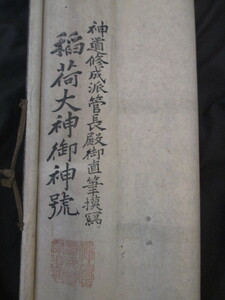 神道修成派管長殿御直筆摸寫
稲荷大神御神號